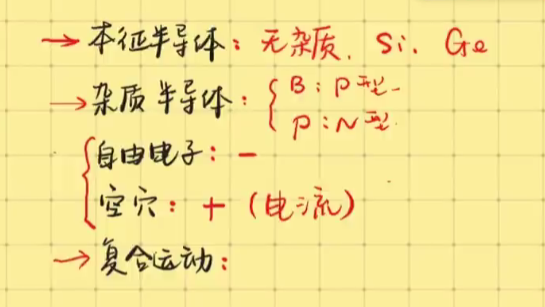 → 本征半导体：无杂质. Si. Ge
→ 杂质半导体：{ B：P型
P：N型
{ 自由电子：-
空穴：+ (电流)
→ 复合运动：